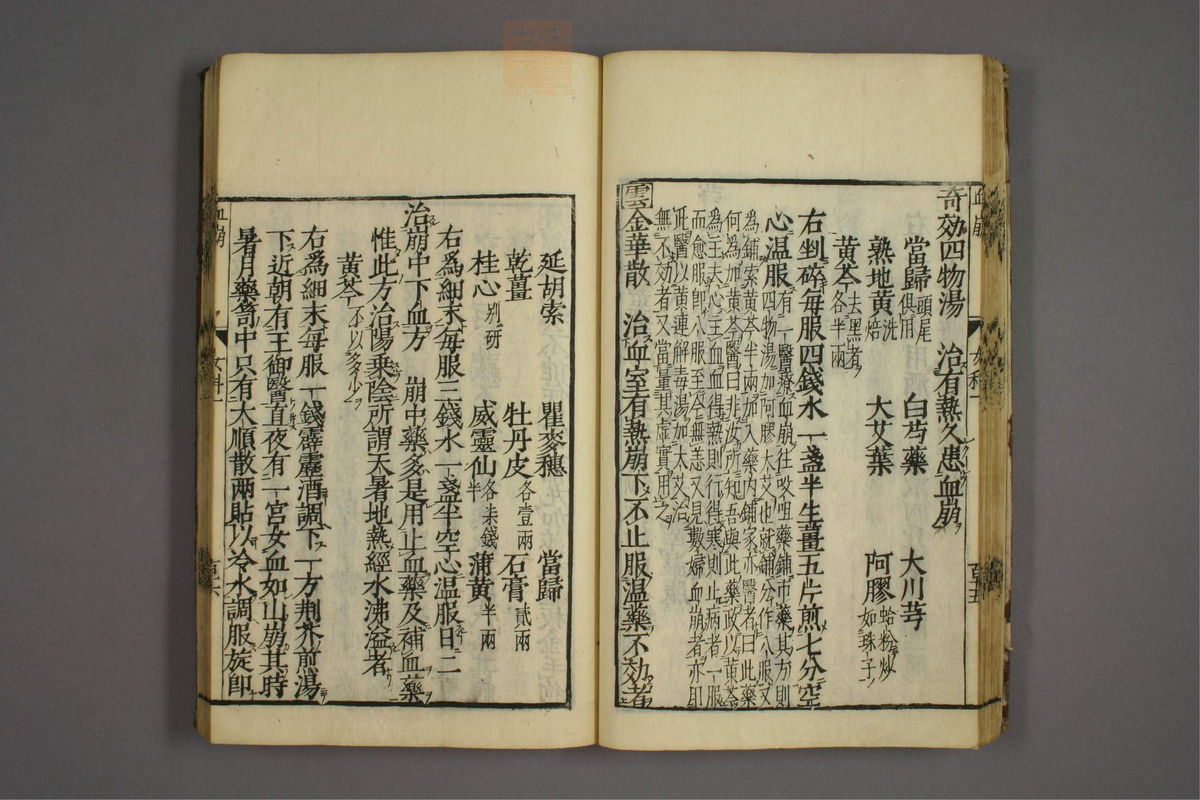 奇効四物湯　治有熱久患血崩
當歸頭尾俱用　白芍藥　大川芎
熟地黄洗焙　大艾葉　阿膠蛤粉炒如珠子
黄芩去黑者各半兩
右剉碎毎服四錢水一盞半生薑五片煎七分空
心温服有一醫療血崩往㕮咀藥鋪市藥其方則
四物湯加阿膠大艾也就鋪分作八服又
為鋪索黄芩半兩加入藥内鋪家亦醫者曰此藥
何為加黄芩醫曰非汝所知吾與此藥政以黄芩
為主夫心主血血得熱則行得寒則止病者一服
而愈服即八服至今無恙又見數婦血崩者亦即
此醫以黄連解毒湯加大艾治
無不効者又當量其虚實用之
雲金華散　治血室有熱崩下不止服温藥不効者
血崩　女科一　百五
延胡索　瞿麥穗　當歸
乾薑　牡丹皮各壹兩　石膏貳兩
桂心別研　威靈仙各柒錢半　蒲黄半兩
右為細末毎服三錢水一盞半空心温服日二
治崩中下血方　崩中藥多是用止血藥及補血藥
惟此方治陽乗陰所謂天暑地熱經水沸溢者
黄芩不以多少
右為細末毎服一錢霹靂酒調下一方荆芥煎湯
下近朝有王御醫直夜有一宮女血如山崩其時
暑月藥笥中只有大順散兩貼以冷水調服旋即
血崩　女科一　百六